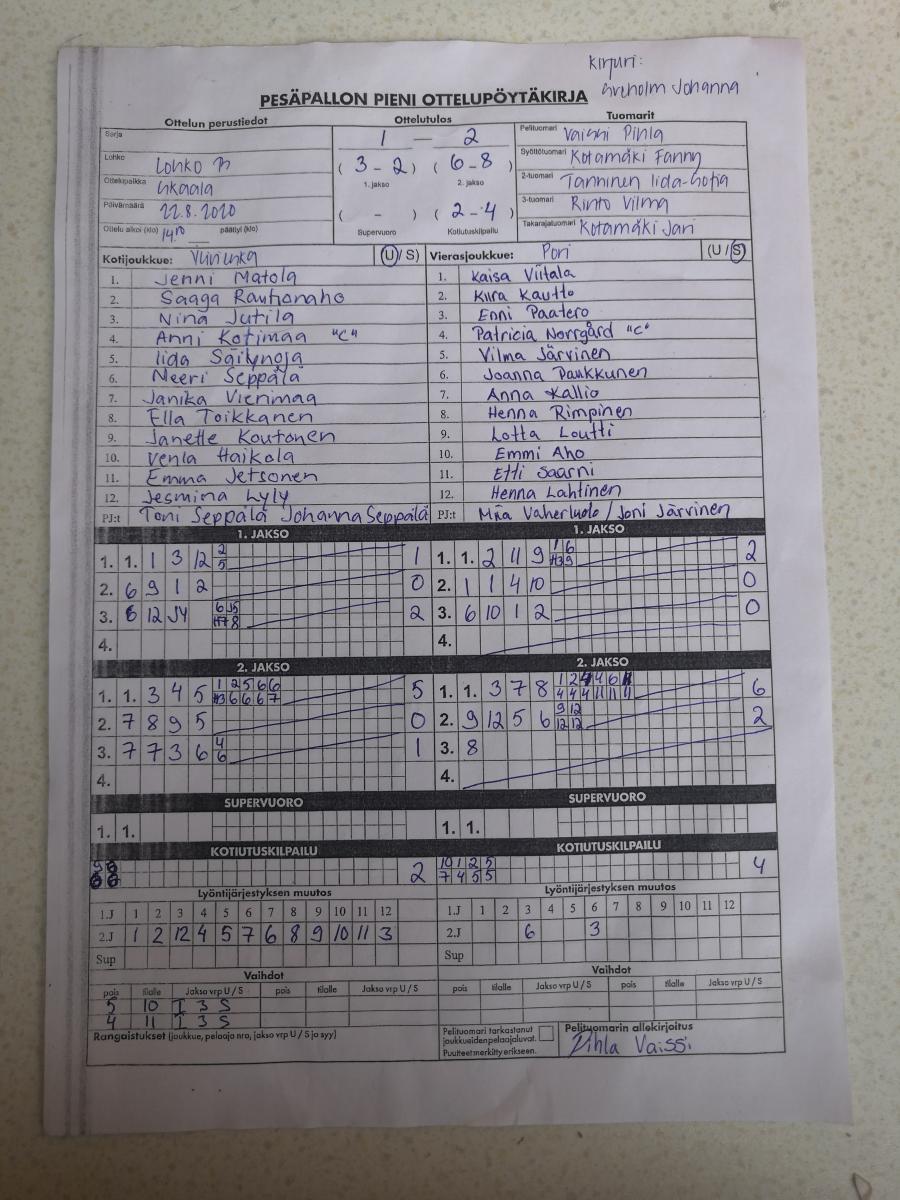 Kirjuri:
Johanna
PESÄPALLON PIENI OTTELUPÖYTÄKIRJA
Ottelun perustiedot Ottelutulos Tuomarit
Sarja 1 — 2 Pelituomari Vaissi Pihla
Lohko Lohko (3-2) (6-8) Syöttötuomari Kotamäki Fanny
Ottelupaikka Ukaala 1. jakso 2. jakso 2-tuomari Tanninen Iida-Sofia
Päivämäärä 22.8.2020 ( - ) (2-4) 3-tuomari Rinto Vilma
Ottelu alkoi (klo) 14.00 päättyi (klo) Supervuoro Kotiutuskilpailu Takarajatuomari Kotamäki Jari
Kotijoukkue: (U/S) Vierasjoukkue: Pori (U/S)
1. Jenni Matola 1. Kaisa Viitala
2. Saaga Rautionaho 2. Kiira Kautto
3. Nina Jutila 3. Enni Paatero
4. Anni Kotimaa "C" 4. Patricia Norrgård "C"
5. Iida Säilynoja 5. Vilma Järvinen
6. Neeri Seppälä 6. Joanna Paukkunen
7. Janika Vierimaa 7. Anna Kallio
8. Ella Toikkanen 8. Henna Rimpinen
9. Janette Koutonen 9. Lotta Loutti
10. Venla Haikola 10. Emmi Aho
11. Emma Jetsonen 11. Etti Saarni
12. Jesmina Lyly 12. Henna Lahtinen
PJ:t Toni Seppälä Johanna Seppälä PJ:t Miia Vaherluoto / Joni Järvinen
1. JAKSO 1. JAKSO
1. 1. 1 3 12 2 5 1 1. 1. 2 11 9 2
2. 6 9 1 2 0 2. 1 1 4 10 0
3. 6 12 J4 2 3. 6 10 1 2 0
4. 4.
2. JAKSO 2. JAKSO
1. 1. 3 4 5 1 2 5 6 6 5 1. 1. 3 7 8 6
2. 7 8 9 5 0 2. 9 12 5 6 9 12 12 12 2
3. 7 7 3 6 4 6 1 3. 8
4. 4.
SUPERVUORO SUPERVUORO
1. 1. 1. 1.
KOTIUTUSKILPAILU KOTIUTUSKILPAILU
2 10 1 2 5 4
7 4 5 5
Lyöntijärjestyksen muutos Lyöntijärjestyksen muutos
1.J 1 2 3 4 5 6 7 8 9 10 11 12 1.J 1 2 3 4 5 6 7 8 9 10 11 12
2.J 1 2 12 4 5 7 6 8 9 10 11 3 2.J 6 3
Sup Sup
Vaihdot Vaihdot
pois tilalle Jakso vrp U / S pois tilalle Jakso vrp U / S pois tilalle Jakso vrp U / S pois tilalle Jakso vrp U / S
5 10 I 3 S
4 11 I 3 S
Rangaistukset (joukkue, pelaaja nro, jakso vrp U / S ja syy) Pelituomari tarkastanut joukkueiden pelaajaluvat. Puutteet merkitty erikseen. Pelituomarin allekirjoitus
Pihla Vaissi